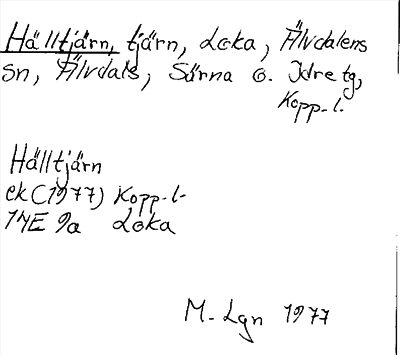 Hälltjärn, tjärn, Loka, Älvdalens
sn, Älvdals, Särna o. Idre tg,
Kopp-l.
Hälltjärn
ek (1977) Kopp-l-
14E 9a Loka
M-Lgn 1977